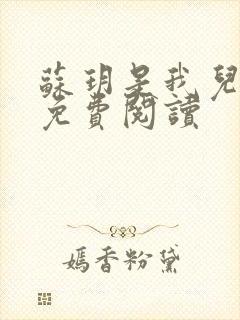 蘇玥是我兒
免費閱讀
嫣香粉黛